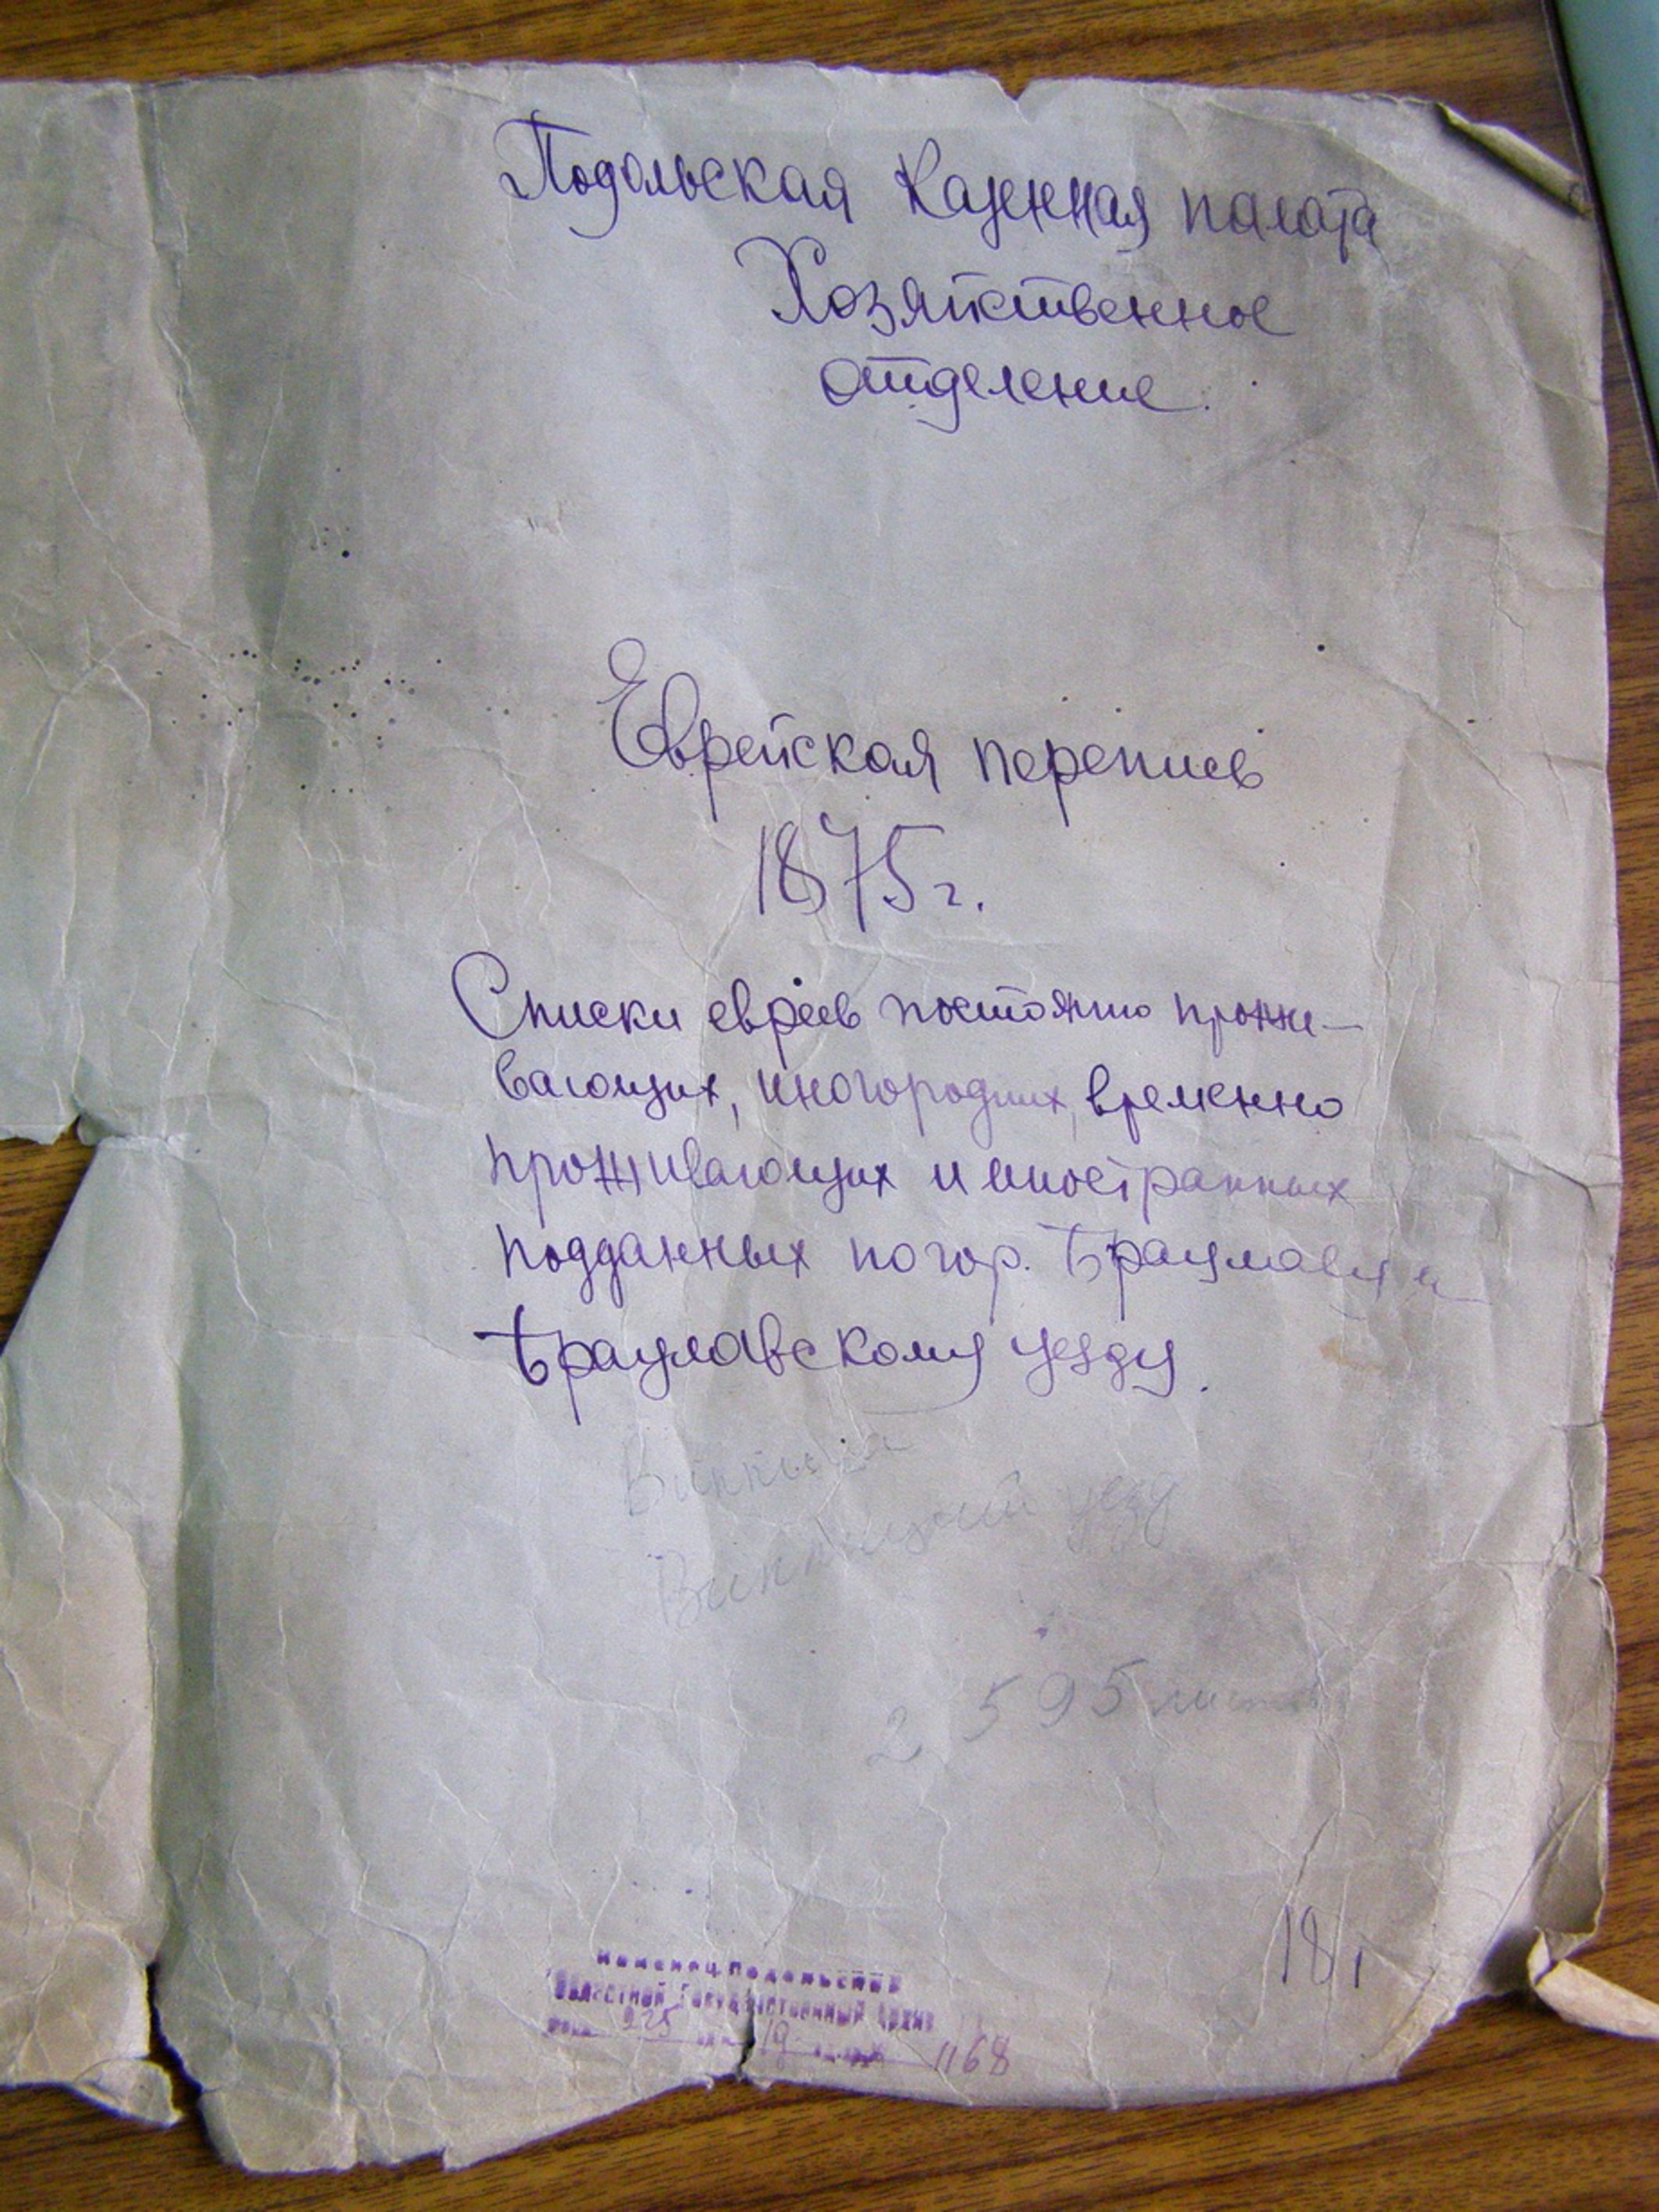 Подольская Казенная палата
Хозяйственное
отделение.
Еврейская перепись
1875 г.
Списки евреев постоянно прожи-
вающих, иногородних, временно
проживающих и иностранных
подданных по гор. Брацлаву и
Брацлавскому уезду.
Винница
Винницкий уезд
2 595 листов
181
Каменец-Подольский
Областной Государственный Архив
фонд 225 оп. 19 1168